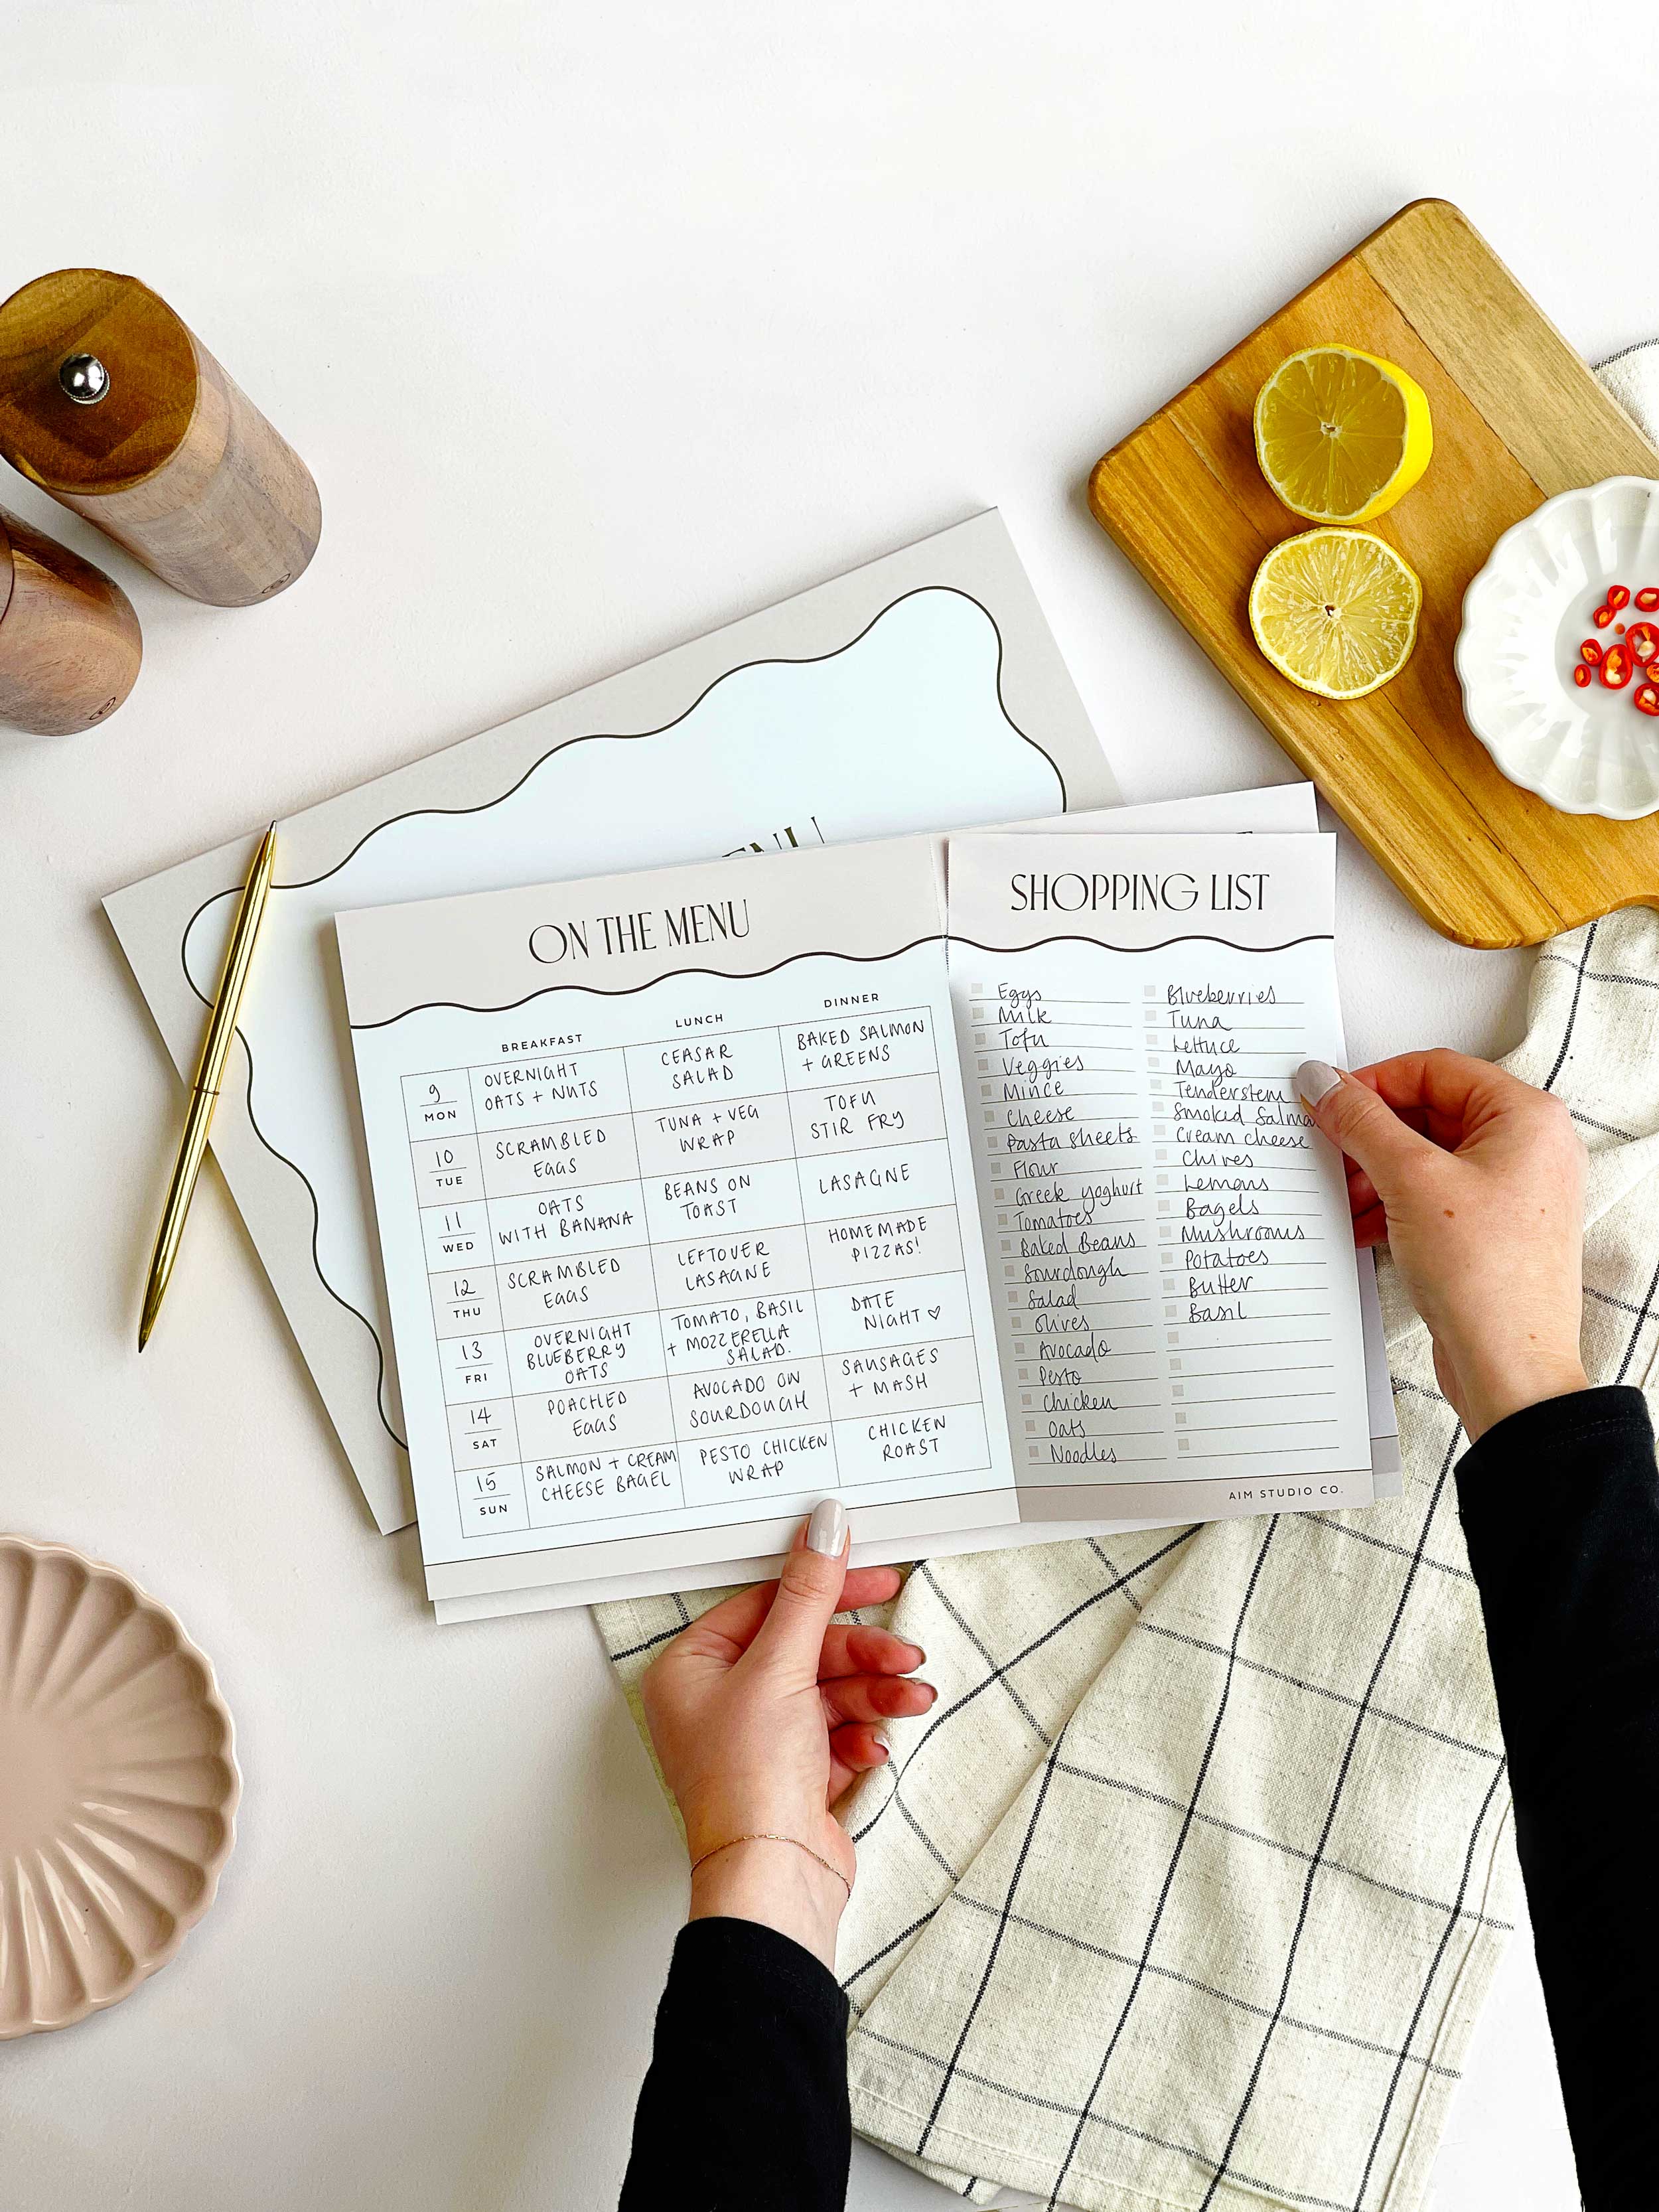 ENU
ON THE MENU
BREAKFAST
LUNCH
DINNER
9
MON
OVERNIGHT
OATS + NUTS
CEASAR
SALAD
BAKED SALMON
+ GREENS
10
TUE
SCRAMBLED
EGGS
TUNA + VEG
WRAP
TOFU
STIR FRY
11
WED
OATS
WITH BANANA
BEANS ON
TOAST
LASAGNE
12
THU
SCRAMBLED
EGGS
LEFTOVER
LASAGNE
HOMEMADE
PIZZAS!
13
FRI
OVERNIGHT
BLUEBERRY
OATS
TOMATO, BASIL
+ MOZZERELLA
SALAD.
DATE
NIGHT ♡
14
SAT
POACHED
EGGS
AVOCADO ON
SOURDOUGH
SAUSAGES
+ MASH
15
SUN
SALMON + CREAM
CHEESE BAGEL
PESTO CHICKEN
WRAP
CHICKEN
ROAST
SHOPPING LIST
Eggs
Milk
Tofu
Veggies
Mince
Cheese
Pasta sheets
Flour
Greek yoghurt
Tomatoes
Baked Beans
Sourdough
Salad
Olives
Avocado
Pesto
Chicken
Oats
Noodles
Blueberries
Tuna
Lettuce
Mayo
Tenderstem
Smoked Salmo
Cream cheese
Chives
Lemons
Bagels
Mushrooms
Potatoes
Butter
Basil
AIM STUDIO CO.